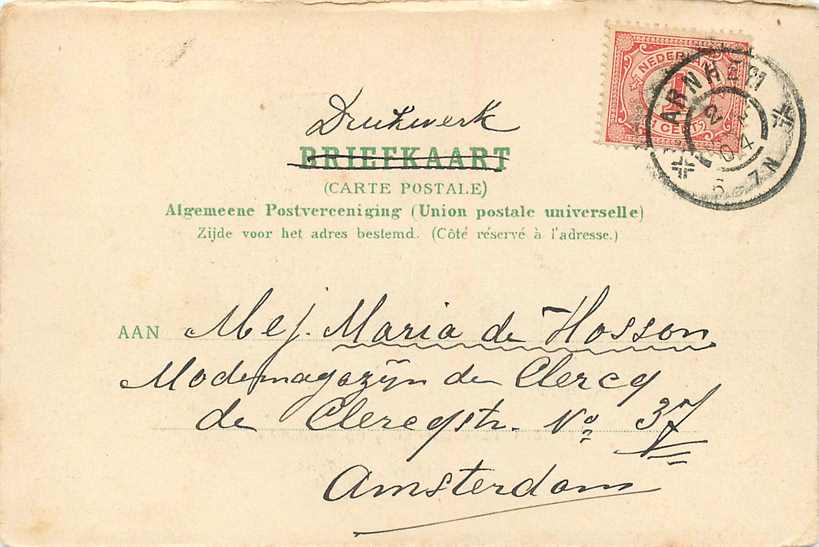 NEDERLAND
1
CENT
ARNHEM
2
04
6 - 7 N
Drukwerk
BRIEFKAART
(CARTE POSTALE)
Algemeene Postvereeniging (Union postale universelle)
Zijde voor het adres bestemd. (Côté réservé à l'adresse.)
AAN Mej. Maria de Hosson
Modemagazijn de Clercq
de Clercqstr. No 37
Amsterdam